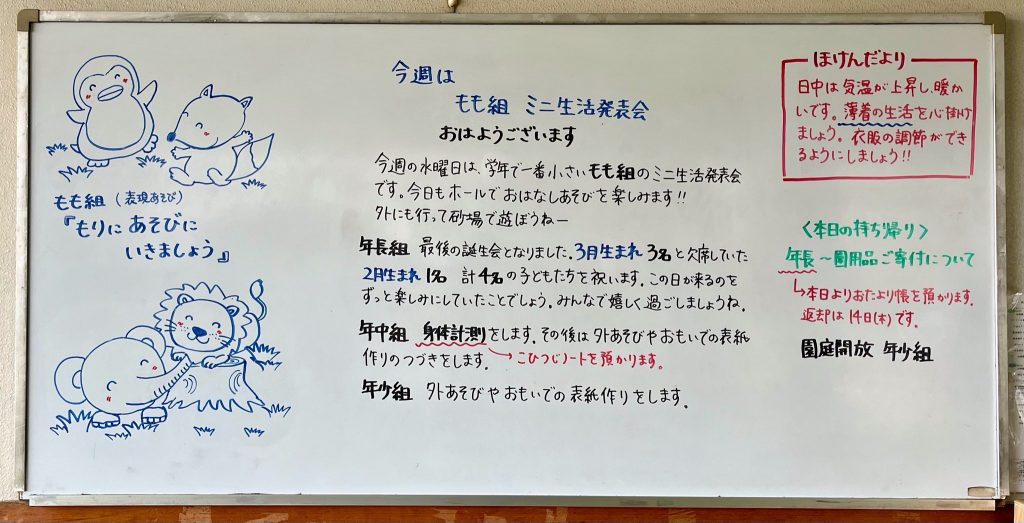 もも組（表現あそび）
『もりに あそびに
いきましょう』
今週は
もも組 ミニ生活発表会
おはようございます
今週の水曜日は、学年で一番小さいもも組のミニ生活発表会
です。今日もホールでおはなしあそびを楽しみます!!
外にも行って砂場で遊ぼうねー
年長組 最後の誕生会となりました。3月生まれ 3名と欠席していた
2月生まれ 1名 計4名の子どもたちを祝います。この日が来るのを
ずっと楽しみにしていたことでしょう。みんなで嬉しく過ごしましょうね。
年中組 身体計測をします。その後は外あそびやおもいでの表紙
作りのつづきをします。 →こひつじノートを預かります。
年少組 外あそびやおもいでの表紙作りをします。
ほけんだより
日中は気温が上昇し、暖か
いです。薄着の生活を心掛け
ましょう。衣服の調節ができ
るようにしましょう!!
〈本日の持ち帰り〉
年長～園用品ご寄付について
→本日よりおたより帳を預かります。
返却は14日(木)です。
園庭開放 年少組